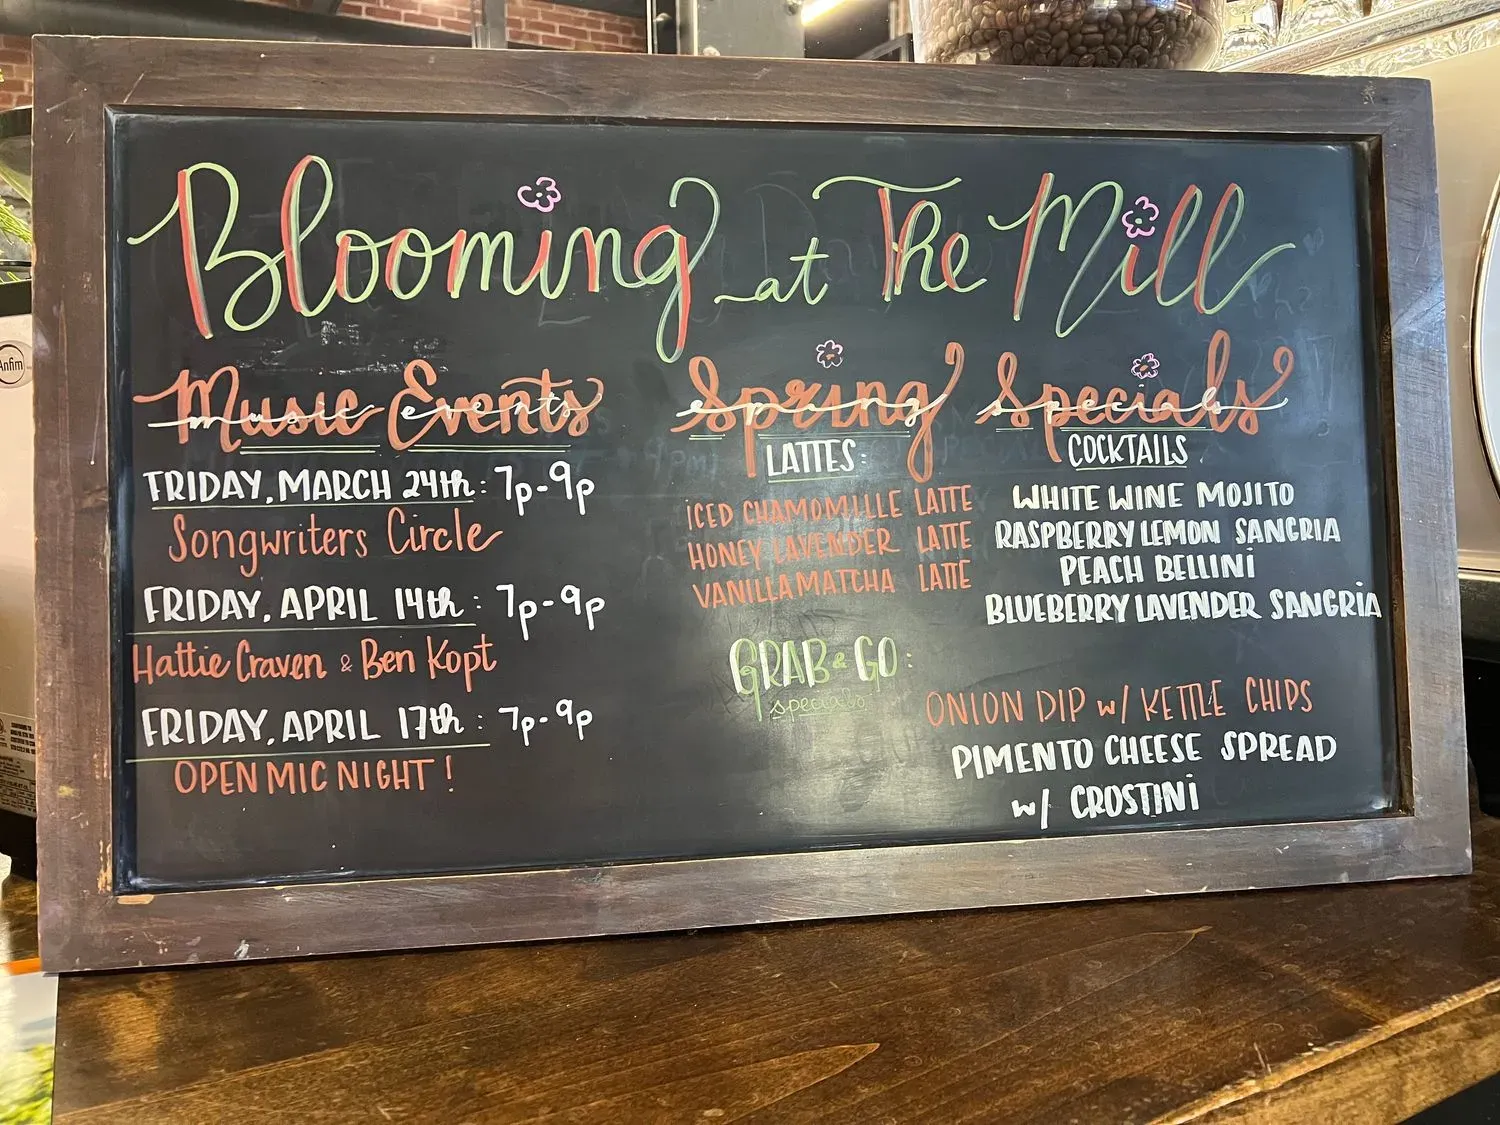 Blooming at The Mill
Music Events
music events
FRIDAY, MARCH 24th: 7p-9p
Songwriters Circle
FRIDAY, APRIL 14th: 7p-9p
Hattie Craven & Ben Kopt
FRIDAY, APRIL 17th: 7p-9p
OPEN MIC NIGHT!
Spring Specials
spring specials
LATTES:
ICED CHAMOMILLE LATTE
HONEY LAVENDER LATTE
VANILLA MATCHA LATTE
COCKTAILS
WHITE WINE MOJITO
RASPBERRY LEMON SANGRIA
PEACH BELLINI
BLUEBERRY LAVENDER SANGRIA
GRAB & GO:
specials
ONION DIP w/ KETTLE CHIPS
PIMENTO CHEESE SPREAD
w/ CROSTINI
Anfim